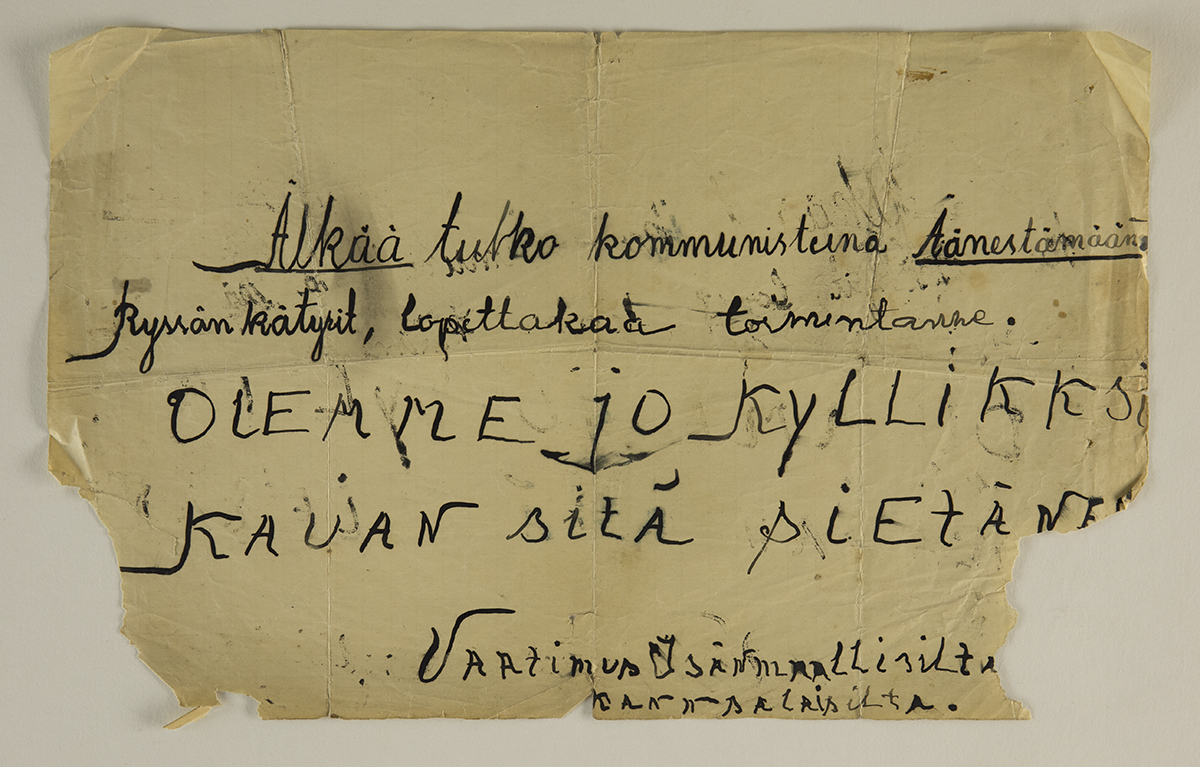 Älkää tulko kommunisteina Äänestämään
Ryssän kätyrit, lopettakaa toimintanne.
OLEMME JO KYLLIKKSI
KAUAN SITÄ SIETÄNEN
VAATIMUS ISÄNMAALLISILTA
KANNSALAISILTA.